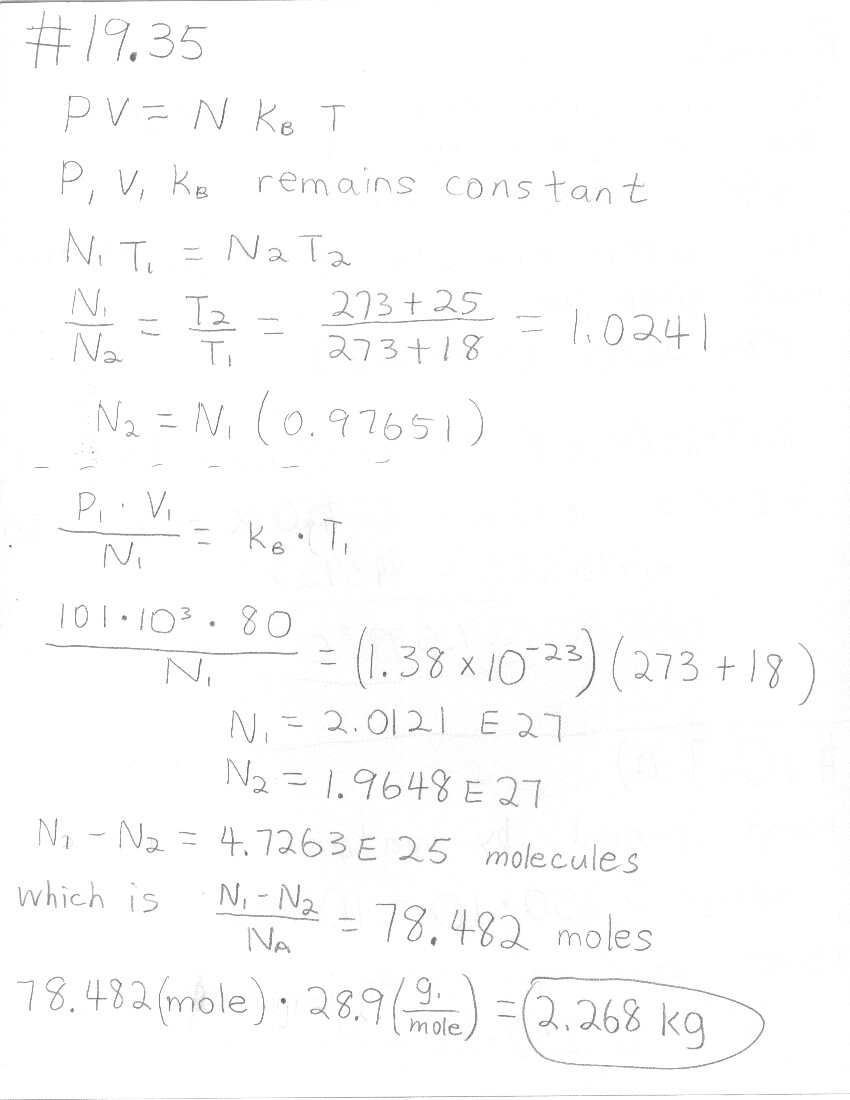 #19.35
PV = N K_B T
P, V, K_B remains constant
N₁ T₁ = N₂ T₂
N₁/N₂ = T₂/T₁ = (273+25)/(273+18) = 1.0241
N₂ = N₁ (0.97651)
(P₁ · V₁)/N₁ = K_B · T₁
(101·10³ · 80)/N₁ = (1.38 × 10⁻²³)(273 + 18)
N₁ = 2.0121 E 27
N₂ = 1.9648 E 27
N₁ - N₂ = 4.7263 E 25 molecules
which is (N₁ - N₂)/N_A = 78.482 moles
78.482 (mole) · 28.9 (g./mole) = 2.268 kg